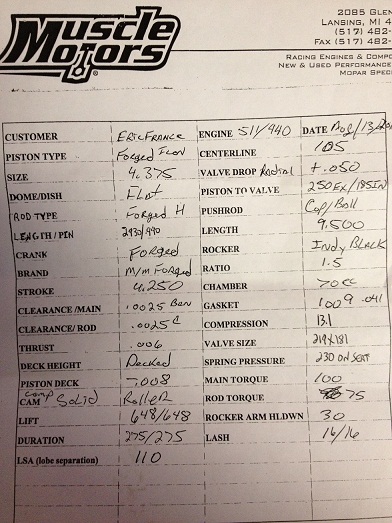 Muscle Motors®
2085 GLEN
LANSING, MI 4
(517) 482-
FAX (517) 482-
RACING ENGINES & COMPO
NEW & USED PERFORMANCE
MOPAR SPECI
CUSTOMER Eric France ENGINE 511/440 DATE
PISTON TYPE Forged Icon CENTERLINE 105
SIZE 4.375 VALVE DROP Radial +.050
DOME/DISH Flat PISTON TO VALVE 250EX/185IN
ROD TYPE Forged H PUSHROD Cup/Ball
LENGTH / PIN /990 LENGTH 9,500
CRANK Forged ROCKER Indy Block
BRAND m/m Forged RATIO 1.5
STROKE 4.250 CHAMBER 70cc
CLEARANCE /MAIN .0025 GASKET 1009 .041
CLEARANCE/ ROD .0025 COMPRESSION 13.1
THRUST .006 VALVE SIZE 219x181
DECK HEIGHT Decked SPRING PRESSURE 230 on SEAT
PISTON DECK -.008 MAIN TORQUE 100
comp
CAM Solid Roller ROD TORQUE 75
LIFT 648/648 ROCKER ARM HLDWN 30
DURATION 275/275 LASH 16/16
LSA (lobe separation) 110